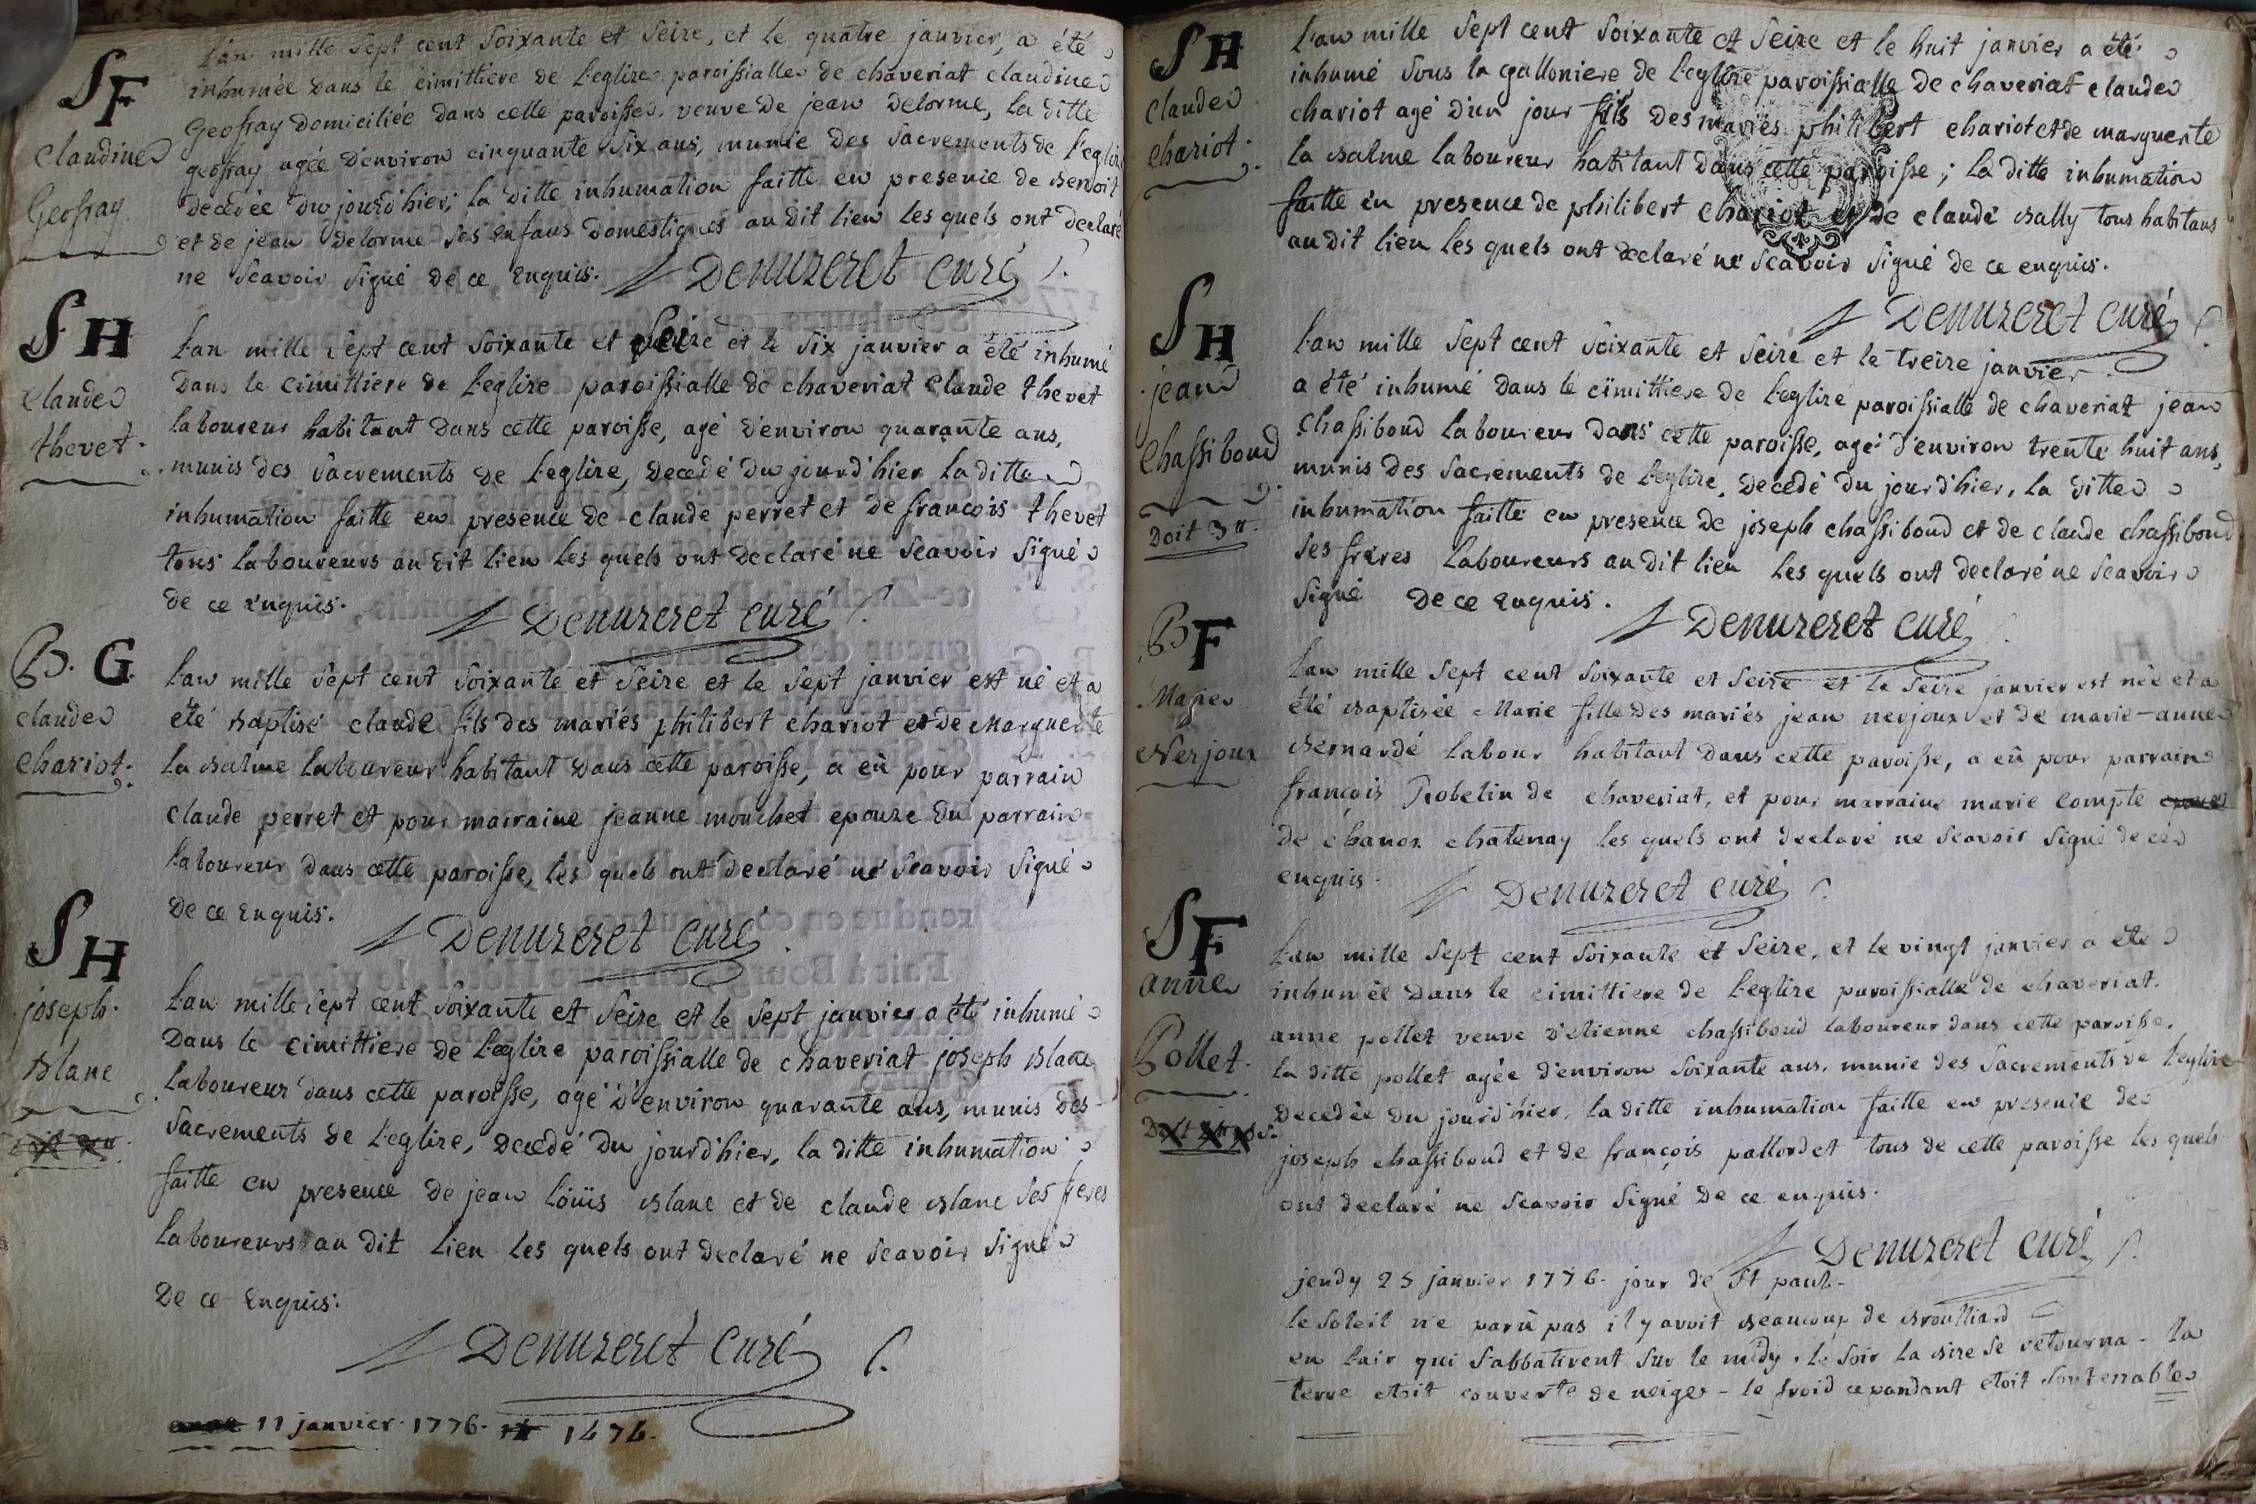 SF
claudine
Geoffray
L'an mille sept cent soixante et seize, et le quatre janvier, a été
inhumée dans le cimittiere de l'eglize paroissialle de chaveriat claudine
Geoffray domiciliée dans cette paroisse. veuve de jean delorme, la ditte
geoffray agée d'environ cinquante six ans, munie des sacrements de l'eglize
décédée du jourd'hier; la ditte inhumation faitte en presence de benoit
et de jean delorme ses enfans domestiques au dit lieu les quels ont declaré
ne scavoir signé de ce enquis. Denuzeret curé
SH
claude
thevet.
L'an mille sept cent soixante et seize et le six janvier a été inhumé
dans le cimittiere de l'eglize paroissialle de chaveriat claude thevet
laboureur habitant dans cette paroisse, agé d'environ quarante ans,
munis des sacrements de l'eglize, decedé du jourd'hier la ditte
inhumation faitte en presence de claude perret et de francois thevet
tous laboureurs au dit lieu les quels ont declaré ne scavoir signé
de ce enquis. Denuzeret curé
B. G.
claude
chariot.
L'an mille sept cent soixante et seize et le sept janvier est né et a
été baptisé claude fils des mariés philibert chariot et de Marguerite
la balme laboureur habitant dans cette paroisse, a eû pour parrain
claude perret et pour marraine jeanne mouchet epouze du parrain
laboureur dans cette paroisse, les quels ont declaré ne scavoir signé
de ce enquis. Denuzeret curé.
SH
joseph.
blanc
L'an mille sept cent soixante et seize et le sept janvier a été inhumé
dans le cimittiere de l'eglize paroissialle de chaveriat joseph blanc
laboureur dans cette paroisse, agé d'environ quarante ans, munis des
sacrements de l'eglize, decedé du jourd'hier, la ditte inhumation
faitte en presence de jean loüis blanc et de claude blanc ses freres
laboureurs au dit lieu les quels ont declaré ne scavoir signé
de ce enquis.
Denuzeret curé
11 janvier. 1776. 1474.
SH
claude
chariot.
L'an mille sept cent soixante et seize et le huit janvier a été
inhumé sous la galloniere de l'eglize paroissialle de chaveriat claude
chariot agé d'un jour fils des mariés philibert chariot et de marguerite
la balme laboureur habitant dans cette paroisse; la ditte inhumation
faitte en presence de philibert chariot et de claude bally tous habitans
au dit lieu les quels ont declaré ne scavoir signé de ce enquis.
Denuzeret curé
SH
jean
chassiboud
Doit 3 ₶.
L'an mille sept cent soixante et seize et le treize janvier
a été inhumé dans le cimittiere de l'eglize paroissialle de chaveriat jean
chassiboud laboureur dans cette paroisse, agé d'environ trente huit ans,
munis des sacrements de l'eglize, decedé du jourd'hier, la ditte
inhumation faitte en presence de joseph chassiboud et de claude chassiboud
ses freres laboureurs au dit lieu les quels ont declaré ne scavoir
signé de ce enquis. Denuzeret curé
BF
Marie
Nerjoux
L'an mille sept cent soixante et seize et le seize janvier est née et a
été baptisée Marie fille des mariés jean nerjoux et de marie-anne
bernardé labour habitant dans cette paroisse, a eû pour parrain
francois Robelin de chaveriat, et pour marraine marie compte
de chanoz chatenay les quels ont declaré ne scavoir signé de ce
enquis. Denuzeret curé
SF
anne
Pollet.
L'an mille sept cent soixante et seize, et le vingt janvier a été
inhumée dans le cimittiere de l'eglize paroissialle de chaveriat.
anne pollet veuve d'etienne chassiboud laboureur dans cette paroisse.
la ditte pollet agée d'environ soixante ans. munie des sacrements de l'eglize
decedée du jourd'hier, la ditte inhumation faitte en presence de
joseph chassiboud et de françois pallordet tous de cette paroisse les quels
ont declaré ne scavoir signé de ce enquis.
Denuzeret curé
jeudy 25 janvier 1776. jour de St paul.
le soleil ne parû pas il y avoit beaucoup de broulliard
en l'air qui s'abbatirent sur le midy. le soir la bize se retourna - la
terre etoit couverte de neige - le froid cependant etoit soutenable